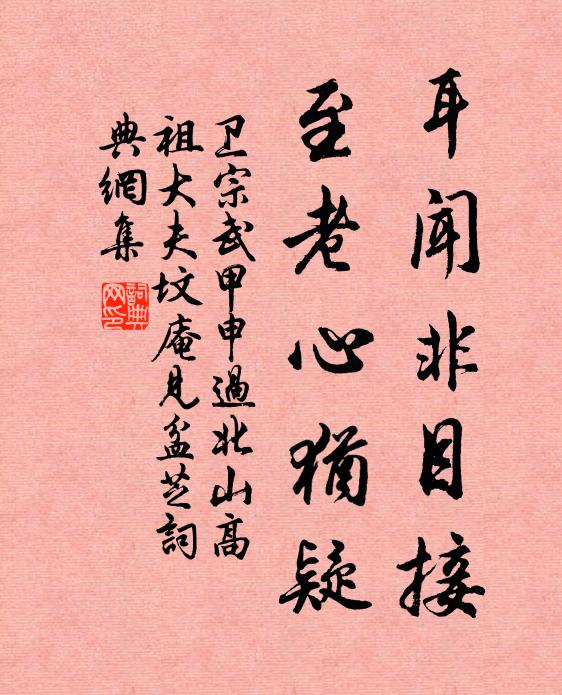 耳聞非目接
至老心猶疑
卫宗武甲申過北山高
祖大夫坟庵見盆芝詞
典網集
詞典
网印